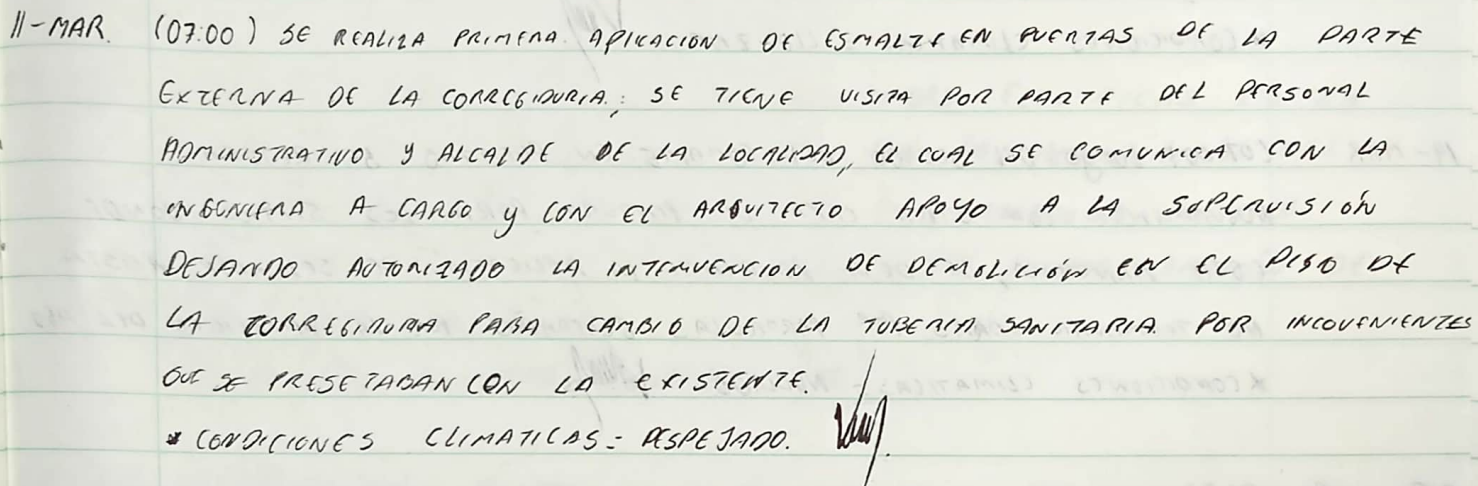 11-MAR. (07:00) SE REALIZA PRIMERA APLICACION DE ESMALTE EN PUERTAS DE LA PARTE
EXTERNA DE LA CORREGIDURIA; SE TIENE VISITA POR PARTE DEL PERSONAL
ADMINISTRATIVO Y ALCALDE DE LA LOCALIDAD, EL CUAL SE COMUNICA CON LA
INGENIERA A CARGO Y CON EL ARQUITECTO APOYO A LA SUPERVISIÓN
DEJANDO AUTORIZADO LA INTERVENCION DE DEMOLICIÓN EN EL PISO DE
LA CORREGIDURIA PARA CAMBIO DE LA TUBERIA SANITARIA POR INCOVENIENTES
QUE SE PRESETABAN CON LA EXISTENTE.
* CONDICIONES CLIMATICAS: DESPEJADO.